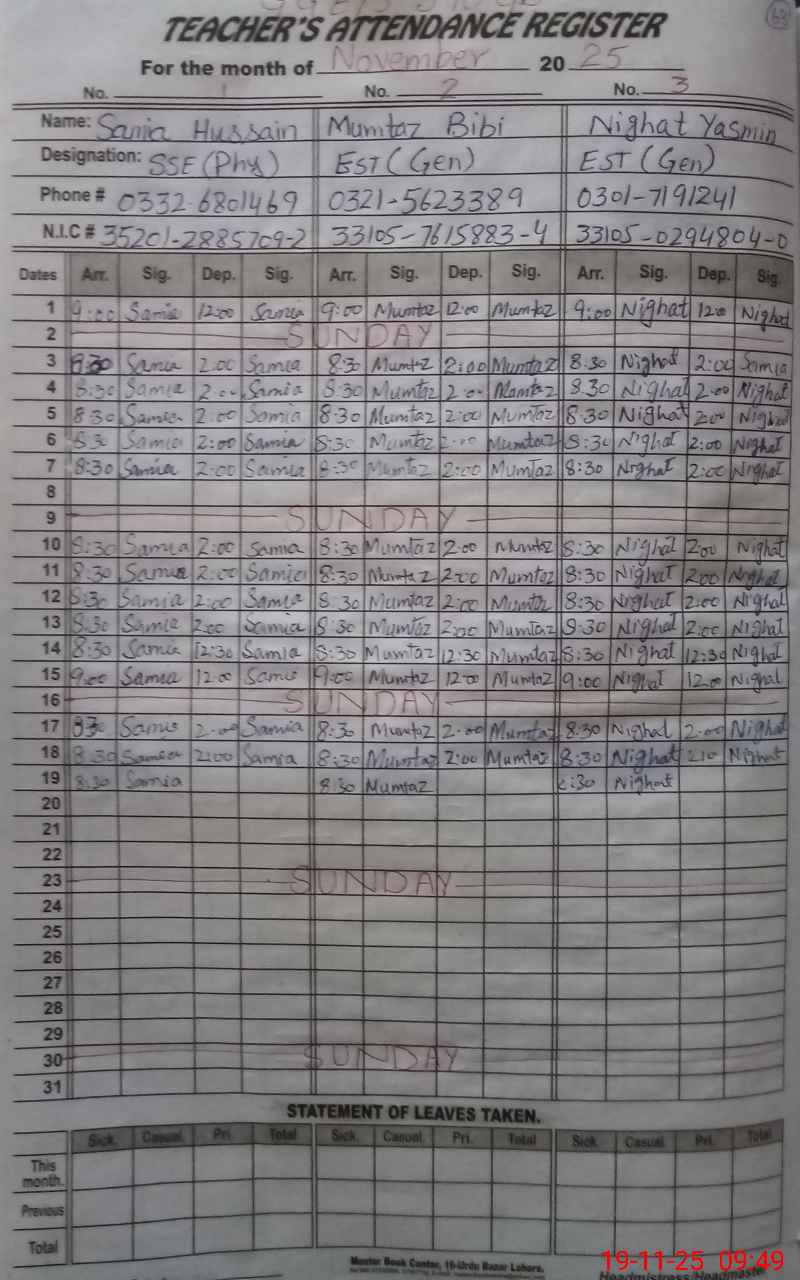 TEACHER'S ATTENDANCE REGISTER
63
For the month of November 2025
No. 1 No. 2 No. 3
Name: Samia Hussain Mumtaz Bibi Nighat Yasmin
Designation: SSE (Phy) EST (Gen) EST (Gen)
Phone # 0332-6801469 0321-5623389 0301-7191241
N.I.C # 35201-2885709-2 33105-7615883-4 33105-0294804-0
Dates Arr. Sig. Dep. Sig. Arr. Sig. Dep. Sig. Arr. Sig. Dep. Sig.
1 9:00 Samia 12:00 Samia 9:00 Mumtaz 12:00 Mumtaz 9:00 Nighat 12:00 Nighat
2 SUNDAY
3 8:30 Samia 2:00 Samia 8:30 Mumtaz 2:00 Mumtaz 8:30 Nighat 2:00 Samia
4 8:30 Samia 2:00 Samia 8:30 Mumtaz 2:00 Mumtaz 8:30 Nighat 2:00 Nighat
5 8:30 Samia 2:00 Samia 8:30 Mumtaz 2:00 Mumtaz 8:30 Nighat 2:00 Nighat
6 8:30 Samia 2:00 Samia 8:30 Mumtaz 2:00 Mumtaz 8:30 Nighat 2:00 Nighat
7 8:30 Samia 2:00 Samia 8:30 Mumtaz 2:00 Mumtaz 8:30 Nighat 2:00 Nighat
8
9 SUNDAY
10 8:30 Samia 2:00 Samia 8:30 Mumtaz 2:00 Mumtaz 8:30 Nighat 2:00 Nighat
11 8:30 Samia 2:00 Samia 8:30 Mumtaz 2:00 Mumtaz 8:30 Nighat 2:00 Nighat
12 8:30 Samia 2:00 Samia 8:30 Mumtaz 2:00 Mumtaz 8:30 Nighat 2:00 Nighat
13 8:30 Samia 2:00 Samia 8:30 Mumtaz 2:00 Mumtaz 8:30 Nighat 2:00 Nighat
14 8:30 Samia 12:30 Samia 8:30 Mumtaz 12:30 Mumtaz 8:30 Nighat 12:30 Nighat
15 9:00 Samia 12:00 Samia 9:00 Mumtaz 12:00 Mumtaz 9:00 Nighat 12:00 Nighat
16 SUNDAY
17 8:30 Samia 2:00 Samia 8:30 Mumtaz 2:00 Mumtaz 8:30 Nighat 2:00 Nighat
18 8:30 Samia 2:00 Samia 8:30 Mumtaz 2:00 Mumtaz 8:30 Nighat Nighat
19 8:30 Samia 8:30 Mumtaz 8:30 Nighat
20
21
22
23 SUNDAY
24
25
26
27
28
29
30 SUNDAY
31
STATEMENT OF LEAVES TAKEN.
Sick. Casual. Pri. Total Sick. Casual. Pri. Total Sick. Casual. Pri. Total
This month.
Previous
Total
Master Book Center, 16-Urdu Bazar Lahore.
Headmistress/Headmaster
19-11-25 09:49